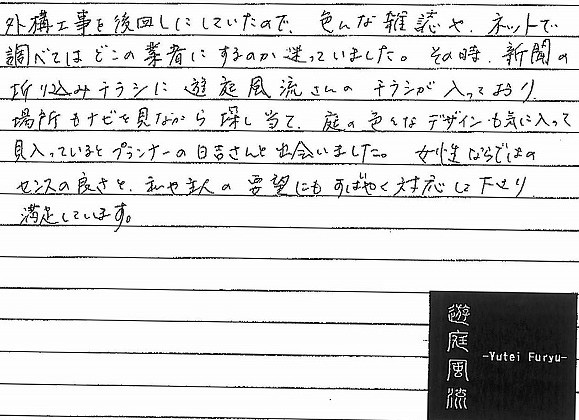 外構工事を後回しにしていたので、色んな雑誌や、ネットで
調べてはどこの業者にするのか迷っていました。その時、新聞の
折り込みチラシに遊庭風流さんのチラシが入っており、
場所もナビを見ながら探し当て、庭の色々なデザインも気に入って
見入っているとプランナーの日吉さんと出会いました。女性ならではの
センスの良さと、私や主人の要望にもすばやく対応して下さり
満足しています。
遊庭風流
-Yutei Furyu-